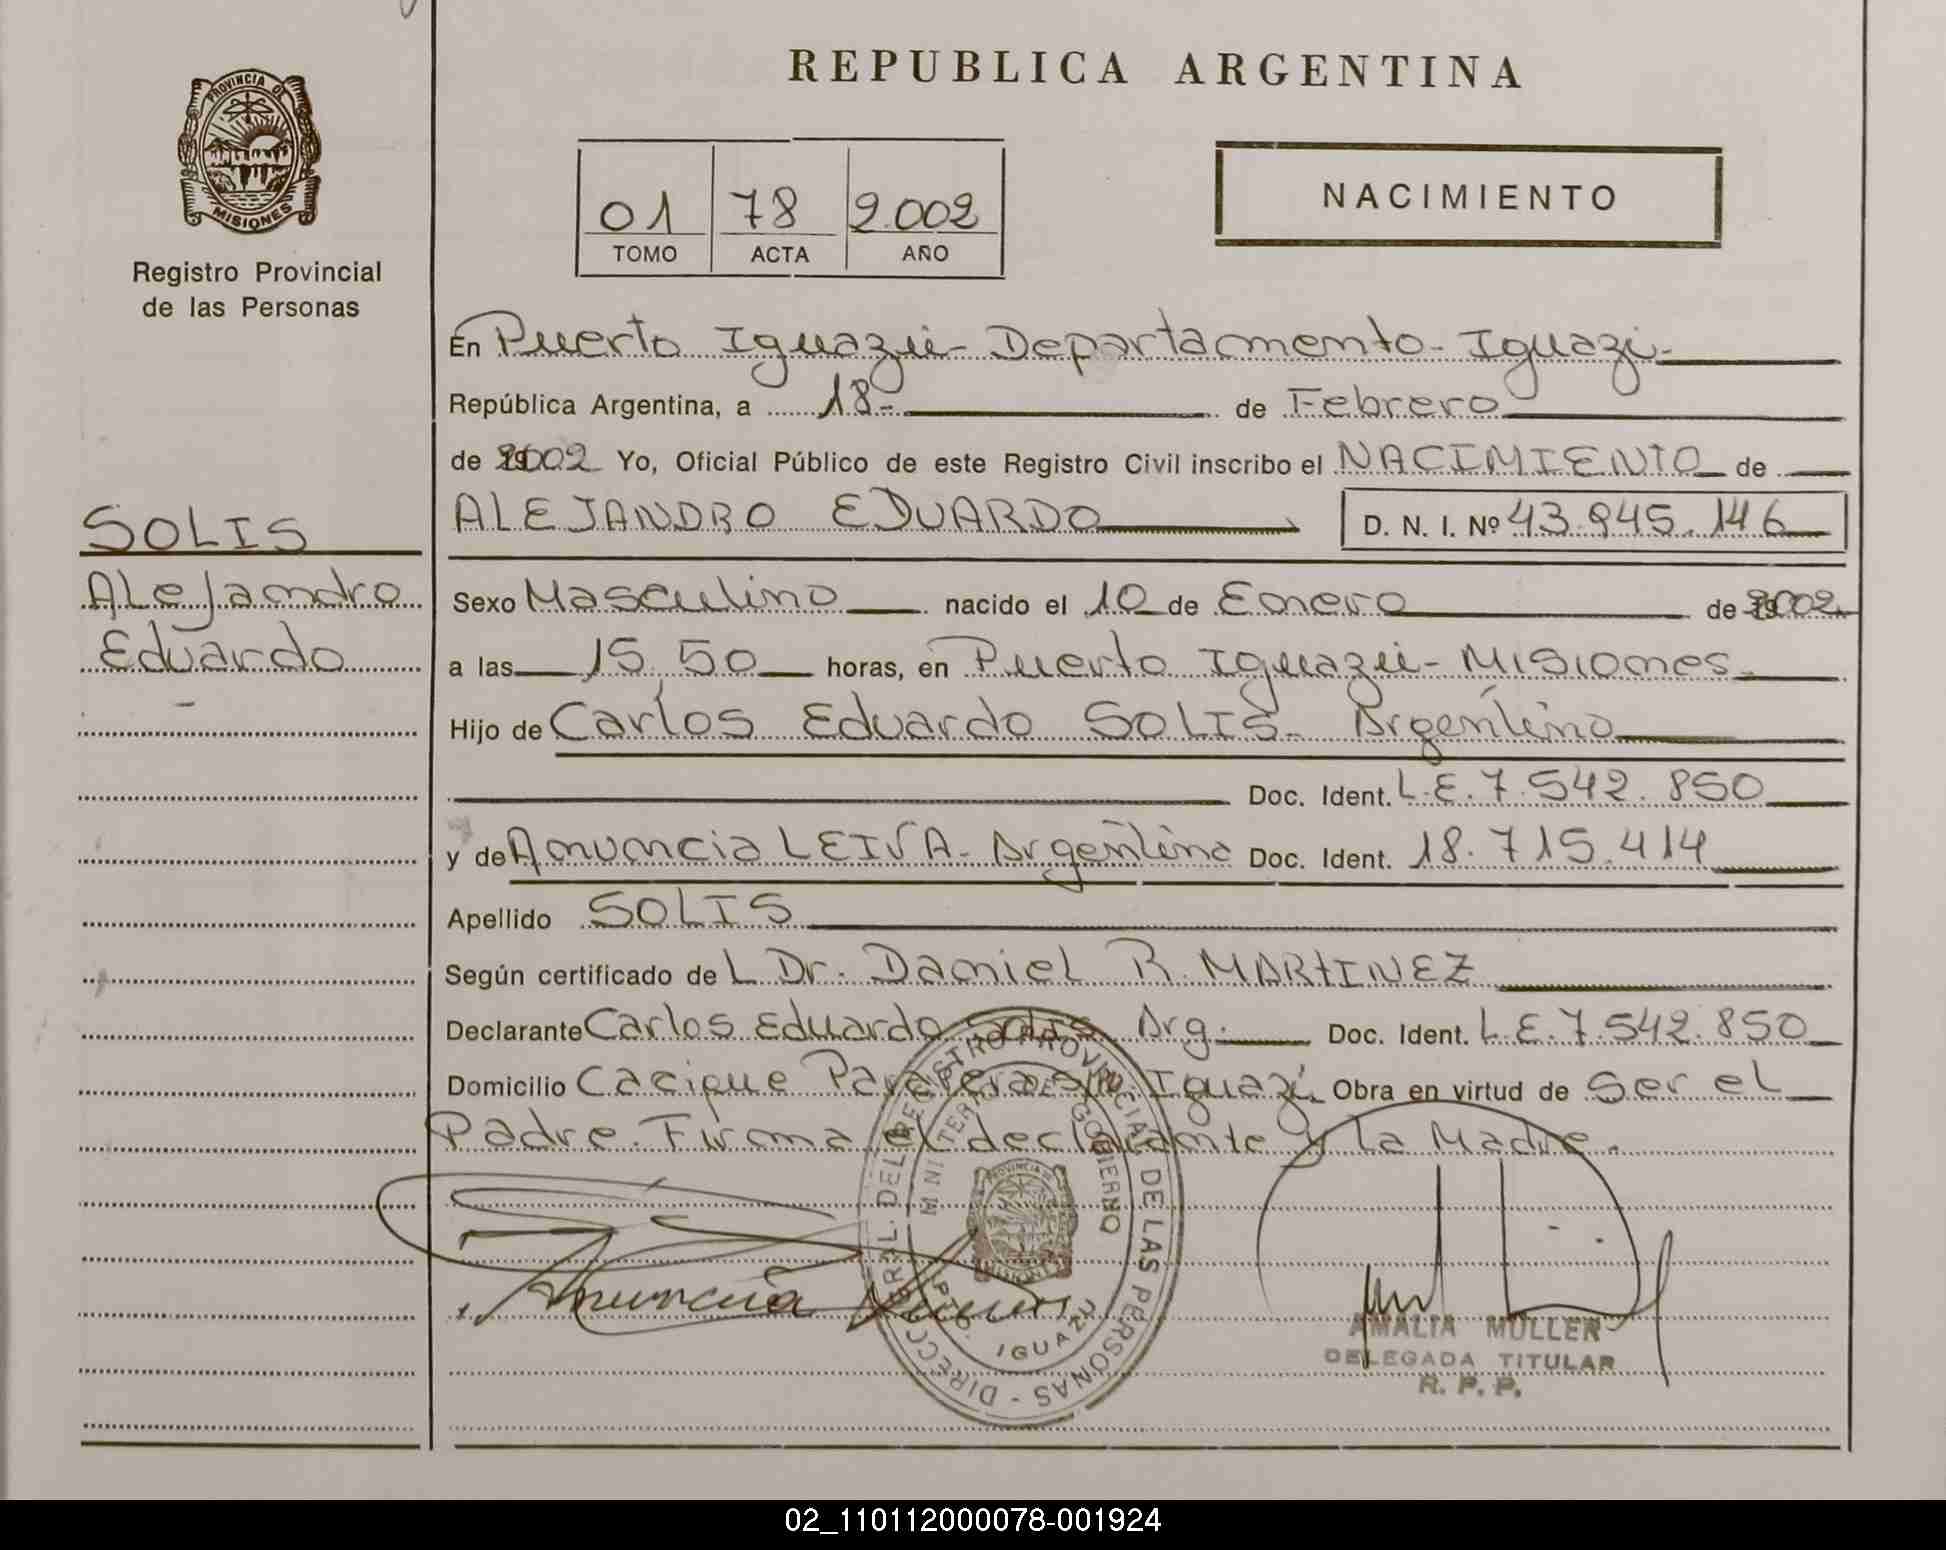 PROVINCIA DE
MISIONES
Registro Provincial
de las Personas
SOLIS
Alejandro
Eduardo
REPUBLICA ARGENTINA
01 78 2.002
TOMO ACTA AÑO
NACIMIENTO
En Puerto Iguazú - Departamento - Iguazú -
República Argentina, a 18 - de Febrero
de 2002 Yo, Oficial Público de este Registro Civil inscribo el NACIMIENTO de
ALEJANDRO EDUARDO D. N. I. Nº 43.945.146
Sexo Masculino nacido el 10 de Enero de 2002
a las 15,50 horas, en Puerto Iguazú - Misiones -
Hijo de Carlos Eduardo SOLIS - Argentino
Doc. Ident. L.E. 7.542.850
y de Anuncia LEIVA - Argentina Doc. Ident. 18.715.414
Apellido SOLIS
Según certificado de L Dr. Daniel R. MARTINEZ
Declarante Carlos Eduardo Solis Arg. Doc. Ident. L.E. 7.542.850
Domicilio Cacique s/n Iguazú Obra en virtud de ser el
Padre. Firma el declarante y la Madre.
DIRECC GRAL. DEL REGISTRO PROVINCIAL DE LAS PERSONAS -
MINISTERIO DE GOBIERNO
PROVINCIA DE
MISIONES
PTO. IGUAZU
Anuncia
AMALIA MULLER
DELEGADA TITULAR
R. P. P.
02_110112000078-001924